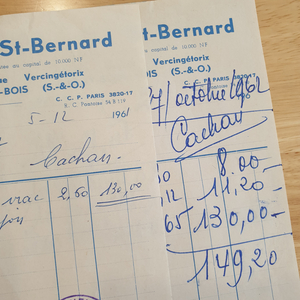 St-Bernard
au capital de 10.000 NF
ue Vercingétorix
-BOIS (S.-&-O.)
C. C. P. PARIS 3820-17
5-12 1961
Cachan
vrac 2,50 130,00
St-Bernard
capital de 10.000 NF
Vercingétorix
(S.-&-O.)
C. C. P. PARIS 3820-17
27/octobre/1962
Cachan
8,00
11,20-
65 130,00-
149,20